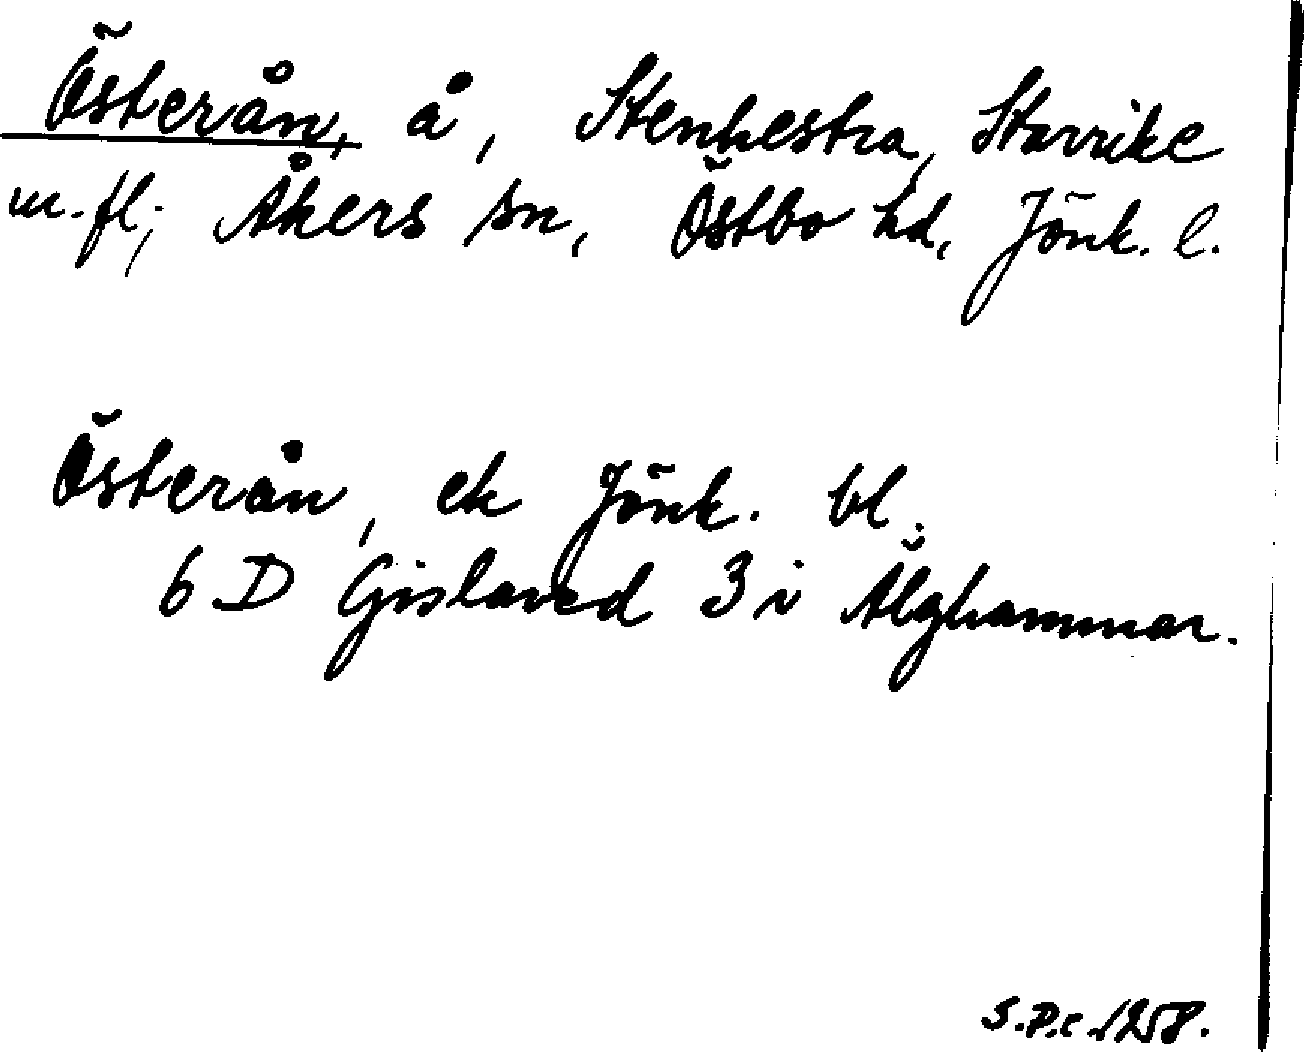 Österån, å, Stenhestra, Starrike
m.fl; Åkers sn, Östbo hd, Jönk. l.
Österån, ek Jönk. bl.
6 D Gislaved 3 i Älghammar.
S.P.c. 1958.